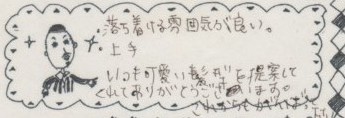 落ち着ける雰囲気が良い。
上手
いつも可愛い髪型を提案して
くれてありがとうございます。
これからも